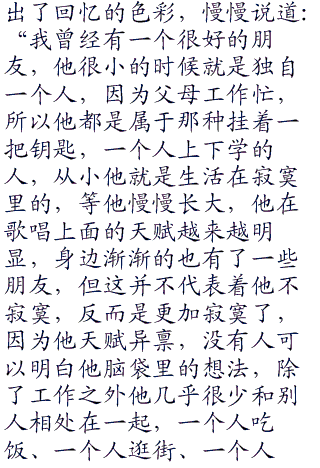 出了回忆的色彩，慢慢说道：
“我曾经有一个很好的朋
友，他很小的时候就是独自
一个人，因为父母工作忙，
所以他都是属于那种挂着一
把钥匙，一个人上下学的
人，从小他就是生活在寂寞
里的，等他慢慢长大，他在
歌唱上面的天赋越来越明
显，身边渐渐的也有了一些
朋友，但这并不代表着他不
寂寞，反而是更加寂寞了，
因为他天赋异禀，没有人可
以明白他脑袋里的想法，除
了工作之外他几乎很少和别
人相处在一起，一个人吃
饭、一个人逛街、一个人